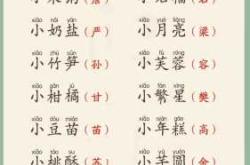 xiǎo nǎi yán xiǎo yuè liàng
小奶盐(严) 小月亮(梁)
xiǎo zhú sǔn xiǎo fú róng
小竹笋(孙) 小芙蓉(容)
xiǎo gān jú xiǎo fán xīng
小柑橘(甘) 小繁星(樊)
xiǎo dòu miáo xiǎo nián gāo
小豆苗(苗) 小年糕(高)
xiǎo táo sū xiǎo yù yuán
小桃酥(苏) 小芋圆